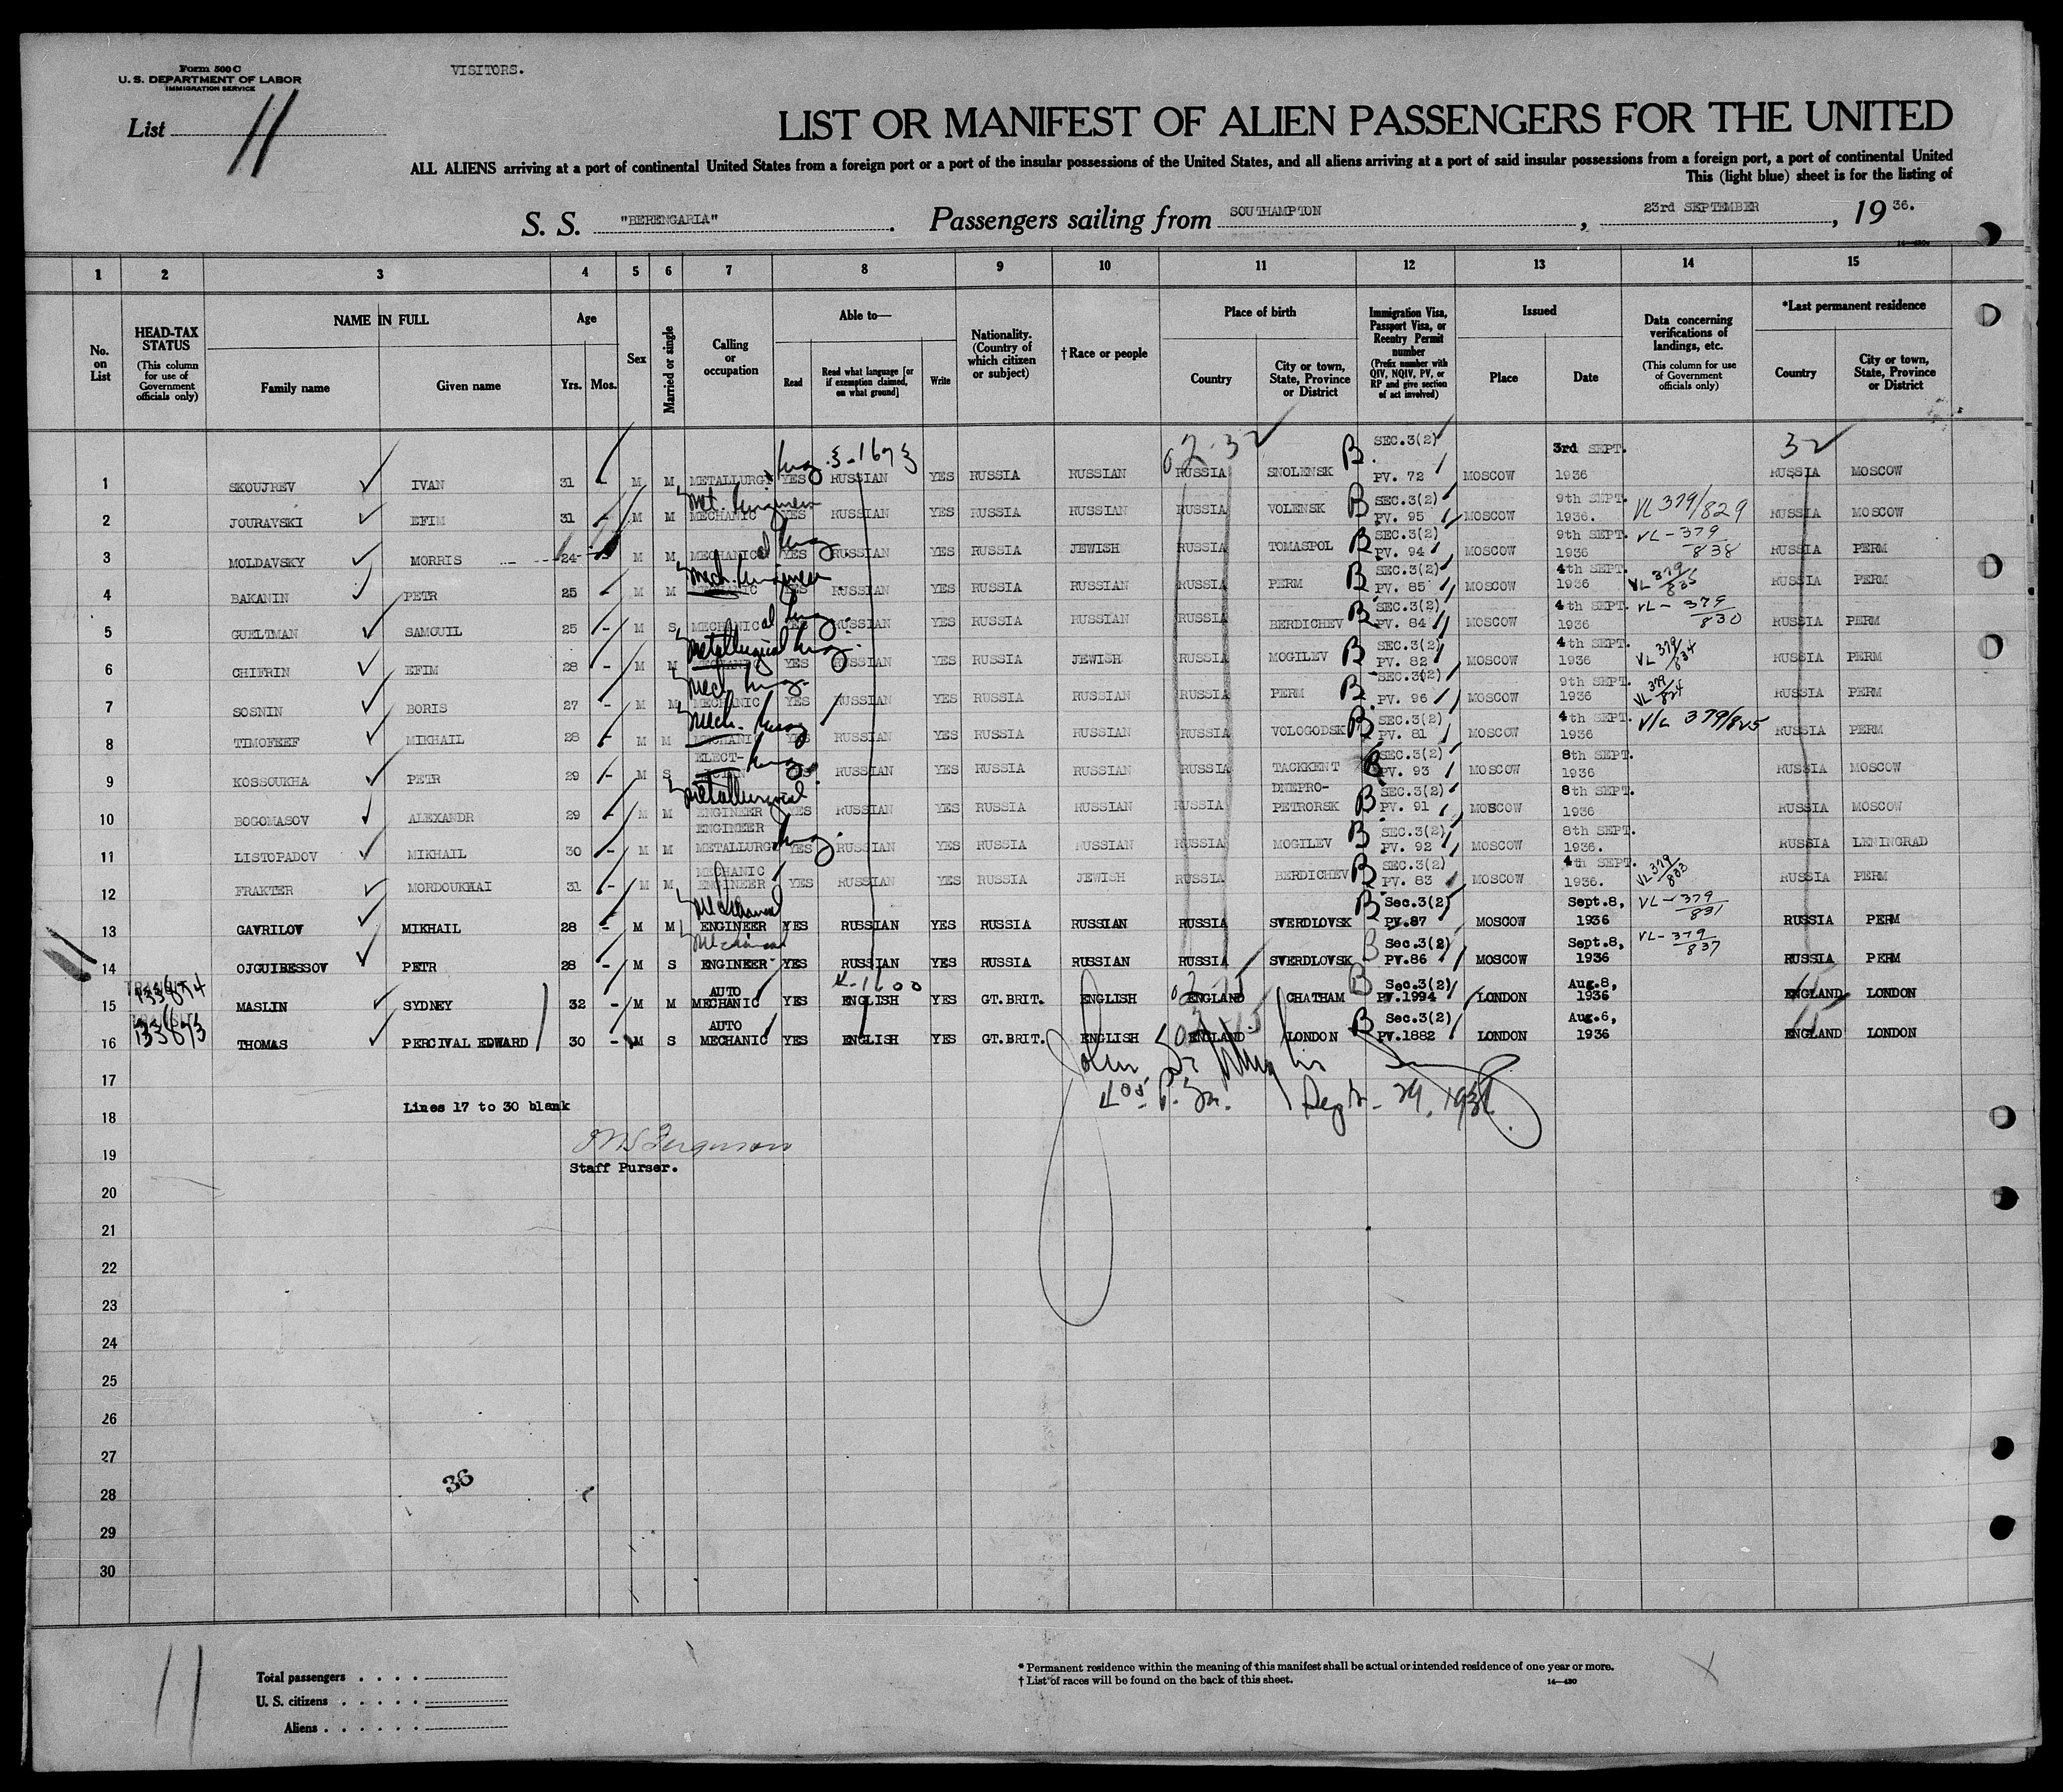 Form 500 C
U. S. DEPARTMENT OF LABOR
IMMIGRATION SERVICE
VISITORS.
List 11
LIST OR MANIFEST OF ALIEN PASSENGERS FOR THE UNITED
ALL ALIENS arriving at a port of continental United States from a foreign port or a port of the insular possessions of the United States, and all aliens arriving at a port of said insular possessions from a foreign port, a port of continental United
This (light blue) sheet is for the listing of
S. S. "BERENGARIA". Passengers sailing from SOUTHAMPTON, 23rd SEPTEMBER, 19 36.
14—430
1 2 3 4 5 6 7 8 9 10 11 12 13 14 15
No. on List
HEAD-TAX STATUS (This column for use of Government officials only)
NAME IN FULL Family name Given name
Age Yrs. Mos.
Sex
Married or single
Calling or occupation
Able to— Read Read what language [or if exemption claimed, on what ground] Write
Nationality. (Country of which citizen or subject)
†Race or people
Place of birth Country City or town, State, Province or District
Immigration Visa, Passport Visa, or Reentry Permit number (Prefix number with QIV, NQIV, PV, or RP and give section of act involved)
Issued Place Date
Data concerning verifications of landings, etc. (This column for use of Government officials only)
*Last permanent residence Country City or town, State, Province or District
02-32 32
1 SKOUJREV IVAN 31 M M METALLURG Eng. 3-1673 YES RUSSIAN YES RUSSIA RUSSIAN RUSSIA SNOLENSK B SEC.3(2) PV. 72 MOSCOW 3rd SEPT. 1936 RUSSIA MOSCOW
2 JOURAVSKI EFIM 31 - M M Met. Engineer MECHANIC YES RUSSIAN YES RUSSIA RUSSIAN RUSSIA VOLENSK B SEC.3(2) PV. 95 MOSCOW 9th SEPT. 1936. VL 379/829 RUSSIA MOSCOW
3 MOLDAVSKY MORRIS 24 - M M MECHANICal Eng YES RUSSIAN YES RUSSIA JEWISH RUSSIA TOMASPOL B SEC.3(2) PV. 94 MOSCOW 9th SEPT. 1936 VL-379/838 RUSSIA PERM
4 BAKANIN PETR 25 - M M Mech. Engineer YES RUSSIAN YES RUSSIA RUSSIAN RUSSIA PERM B SEC.3(2) PV. 85 MOSCOW 4th SEPT. 1936 VL 379/835 RUSSIA PERM
5 GUELTMAN SAMOUIL 25 - M S MECHANICal Eng. YES RUSSIAN YES RUSSIA RUSSIAN RUSSIA BERDICHEV B SEC.3(2) PV. 84 MOSCOW 4th SEPT. 1936 VL-379/830 RUSSIA PERM
6 CHIFRIN EFIM 28 - M M Metallurgical Eng. MECHANIC YES RUSSIAN YES RUSSIA JEWISH RUSSIA MOGILEV B SEC.3(2) PV. 82 MOSCOW 4th SEPT. 1936 VL 379/834 RUSSIA PERM
7 SOSNIN BORIS 27 - M M Mech Eng. MECHANIC YES RUSSIAN YES RUSSIA RUSSIAN RUSSIA PERM B SEC.3(2) PV. 96 MOSCOW 9th SEPT. 1936 VL 379/824 RUSSIA PERM
8 TIMOFEEF MIKHAIL 28 - M M Mech. Eng MECHANI YES RUSSIAN YES RUSSIA RUSSIAN RUSSIA VOLOGODSK B SEC.3(2) PV. 81 MOSCOW 4th SEPT. 1936 V/L 379/825 RUSSIA PERM
9 KOSSOUKHA PETR 29 - M S ELECT- Eng. RUSSIAN YES RUSSIA RUSSIAN RUSSIA TACKKENT B SEC.3(2) PV. 93 MOSCOW 8th SEPT. 1936 RUSSIA MOSCOW
10 BOGOMASOV ALEXANDR 29 - M M Metallurgical ENGINEER YES RUSSIAN YES RUSSIA RUSSIAN RUSSIA DNEPRO-PETRORSK B SEC.3(2) PV. 91 MOSCOW 8th SEPT. 1936 RUSSIA MOSCOW
11 LISTOPADOV MIKHAIL 30 - M M ENGINEER METALLURG Eng. YES RUSSIAN YES RUSSIA RUSSIAN RUSSIA MOGILEV B SEC.3(2) PV. 92 MOSCOW 8th SEPT. 1936. RUSSIA LENINGRAD
12 FRAKTER MORDOUKHAI 31 - M M MECHANIC ENGINEER YES RUSSIAN YES RUSSIA JEWISH RUSSIA BERDICHEV B SEC.3(2) PV. 83 MOSCOW 4th SEPT. 1936. VL 379/833 RUSSIA PERM
13 GAVRILOV MIKHAIL 28 - M M Mechanical ENGINEER YES RUSSIAN YES RUSSIA RUSSIAN RUSSIA SVERDLOVSK B Sec.3(2) PV.87 MOSCOW Sept.8, 1936 VL-379/831 RUSSIA PERM
14 OJGUIBESSOV PETR 28 - M S Mechanical ENGINEER YES RUSSIAN YES RUSSIA RUSSIAN RUSSIA SVERDLOVSK B Sec.3(2) PV.86 MOSCOW Sept.8, 1936 VL-379/837 RUSSIA PERM
15 TRANSIT 133674 MASLIN SYDNEY 32 - M M AUTO MECHANIC YES K-1600 ENGLISH YES GT.BRIT. ENGLISH ENGLAND CHATHAM B Sec.3(2) PV.1994 LONDON Aug.8, 1936 ENGLAND LONDON
16 TRANSIT 133673 THOMAS PERCIVAL EDWARD 30 - M S AUTO MECHANIC YES ENGLISH YES GT.BRIT. ENGLISH ENGLAND LONDON B Sec.3(2) PV.1882 LONDON Aug.6, 1936 ENGLAND LONDON
17
Lines 17 to 30 blank
Sept. 29, 1936.
18
Ferguson
19
Staff Purser.
20
21
22
23
24
25
26
27
36
28
29
30
11
Total passengers
U. S. citizens
Aliens
* Permanent residence within the meaning of this manifest shall be actual or intended residence of one year or more.
† List of races will be found on the back of this sheet.
14—430